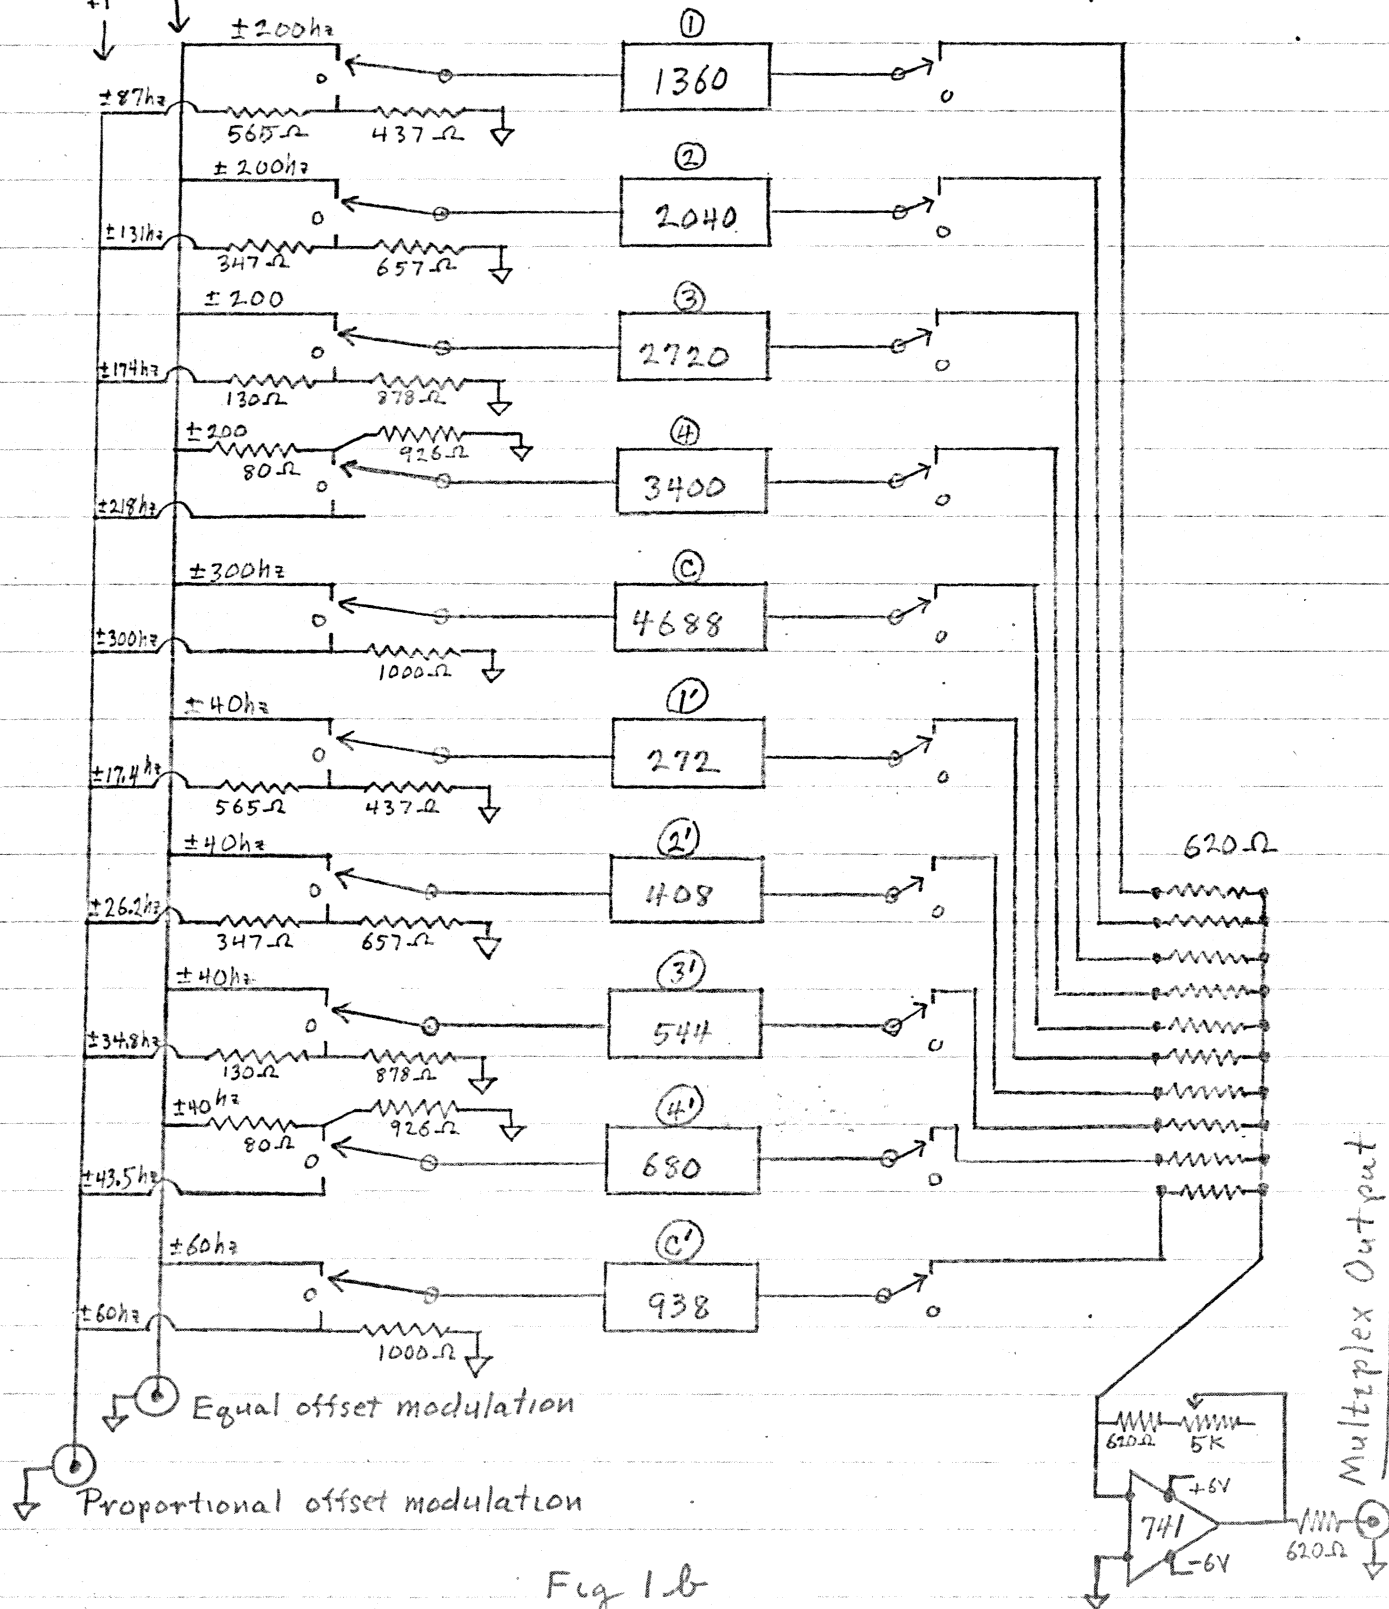 +1
±200hz
①
1360
±87hz
565Ω
437Ω
±200hz
②
2040
±131hz
347Ω
657Ω
±200
③
2720
±174hz
130Ω
878Ω
±200
80Ω
926Ω
④
3400
±218hz
±300hz
Ⓒ
4688
±300hz
1000Ω
±40hz
1'
272
±17.4hz
565Ω
437Ω
±40hz
2'
408
620Ω
±26.2hz
347Ω
657Ω
±40hz
3'
544
±34.8hz
130Ω
878Ω
±40hz
80Ω
926Ω
4'
680
±43.5hz
±60hz
C'
938
±60hz
1000Ω
Equal offset modulation
Proportional offset modulation
620Ω
5K
+6V
741
-6V
620Ω
Multiplex Output
Fig 1b